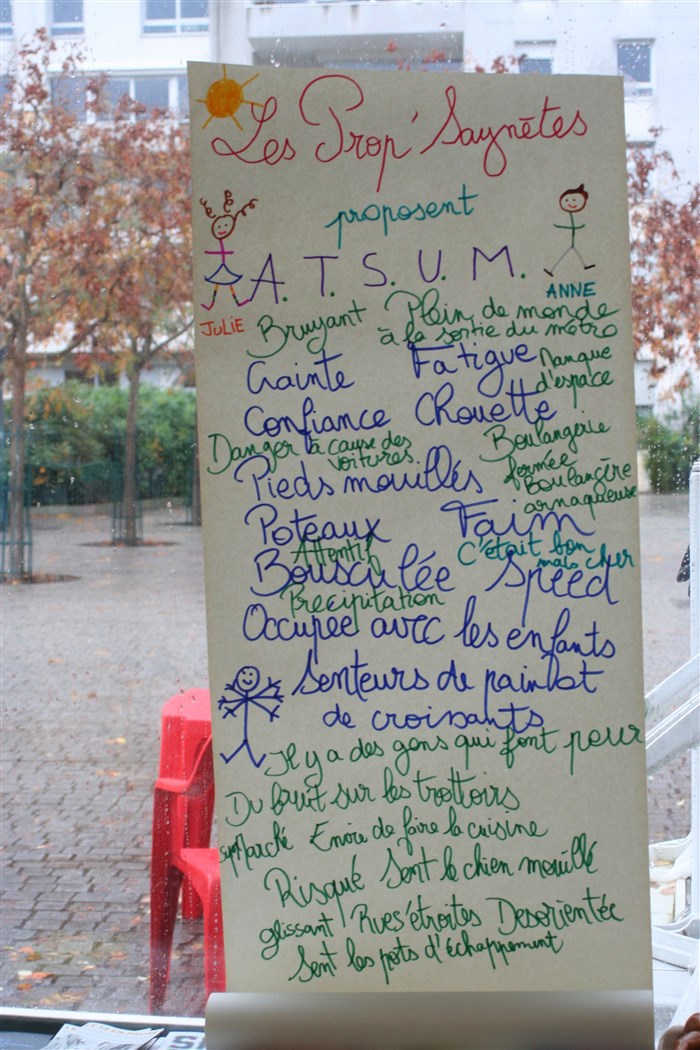 Les Prop' Saynètes
proposent
A. T. S. U. M.
JULIE
ANNE
Bruyant
Plein de monde
à la sortie du métro
Crainte
Fatigue
Manque
d'espace
Confiance
Chouette
Danger à cause des
voitures
Boulangerie
fermée
Boulangère
arnaqueuse
Pieds mouillés
Poteaux
Faim
Attentif
C'était bon
mais cher
Bousculée
Speed
Précipitation
Occupée avec les enfants
Senteurs de pain
de croissants
Il y a des gens qui font peur
Du bruit sur les trottoirs
Marché
Envie de faire la cuisine
Risqué
Sent le chien mouillé
glissant
Rues étroites
Desorientée
Sent les pots d'échappement